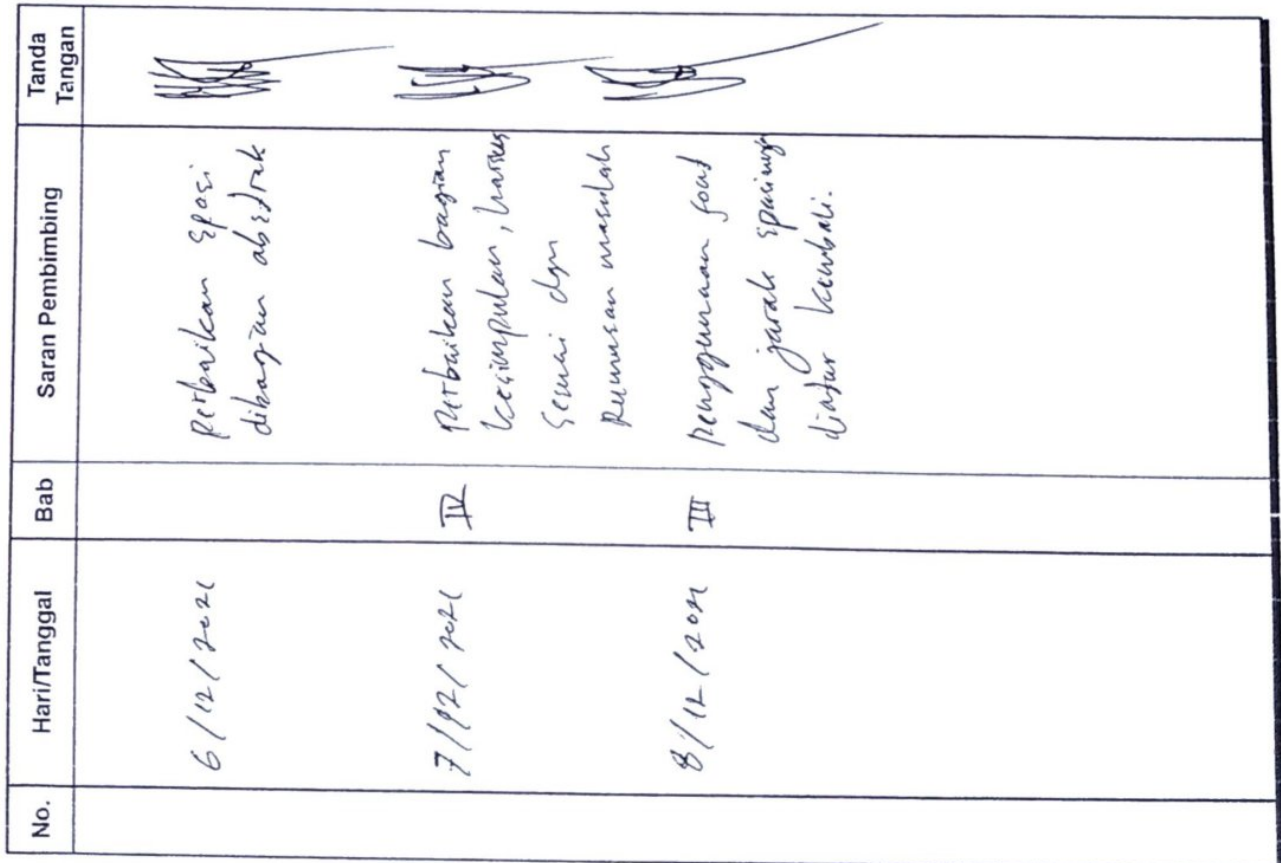 No. Hari/Tanggal Bab Saran Pembimbing Tanda Tangan
6/12/2021 perbaikan spasi
dibagian abstrak
7/12/2021 IV Perbaikan bagian
kesimpulan, harus
sesuai dgn
Rumusan masalah
8/12/2021 III penggunaan font
dan jarak spasinya
diatur kembali.